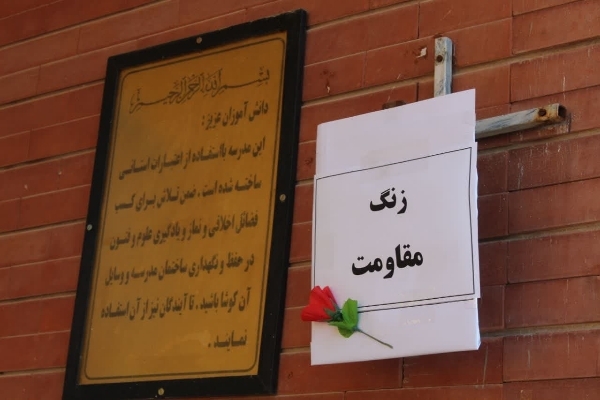 بسم الله الرحمن الرحیم
دانش آموزان عزیز :
این مدرسه بااستفاده از اعتبارات استانی
ساخته شده است . ضمن تلاش برای کسب
فضائل اخلاقی و نماز و یادگیری علوم و فنون
در حفظ و نگهداری ساختمان مدرسه و وسایل
آن کوشا باشید . تا آیندگان نیز از آن استفاده
نمایند .
زنگ
مقاومت